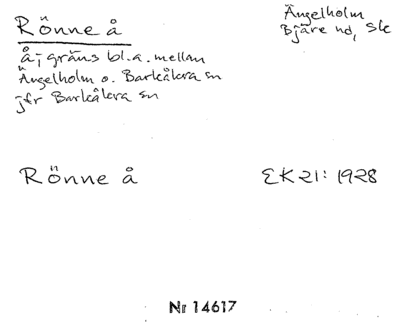 Rönne å
Ängelholm
Bjäre hd, Sk
å; gräns bl.a. mellan
Ängelholm o. Barkåkra sn
jfr Barkåkra sn
Rönne å
EK 21: 1928
Nr 14617